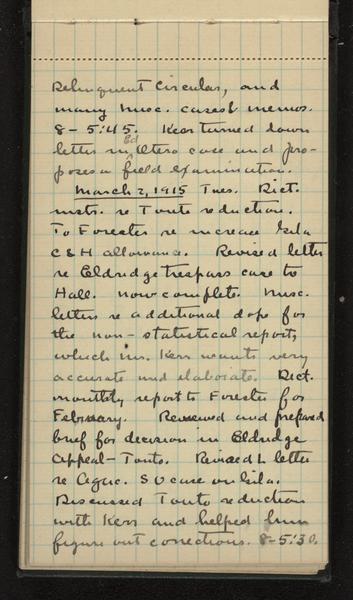 Delinquent Circular, and
many misc. cases & memos.
8-5:45. Kerr turned down
letter in Ed Otero case and pro-
poses a field examination.
March 2, 1915 Tues. Dict.
mstr. re Tonto reduction.
To Forester re increase Gila
C & H allowance. Revised letter
re Eldredge trespass case to
Hall. now complete. Misc.
letters re additional dope for
the non-statistical report,
which Mr. Kerr wants very
accurate and elaborate. Dict.
monthly report to Forester for
February. Reviewed and prepared
brief for decision in Eldredge
Appeal-Tonto. Revised L letter
re S U case on Gila.
Discussed Tonto reduction
with Kerr and helped him
figure out corrections. 8-5:30.